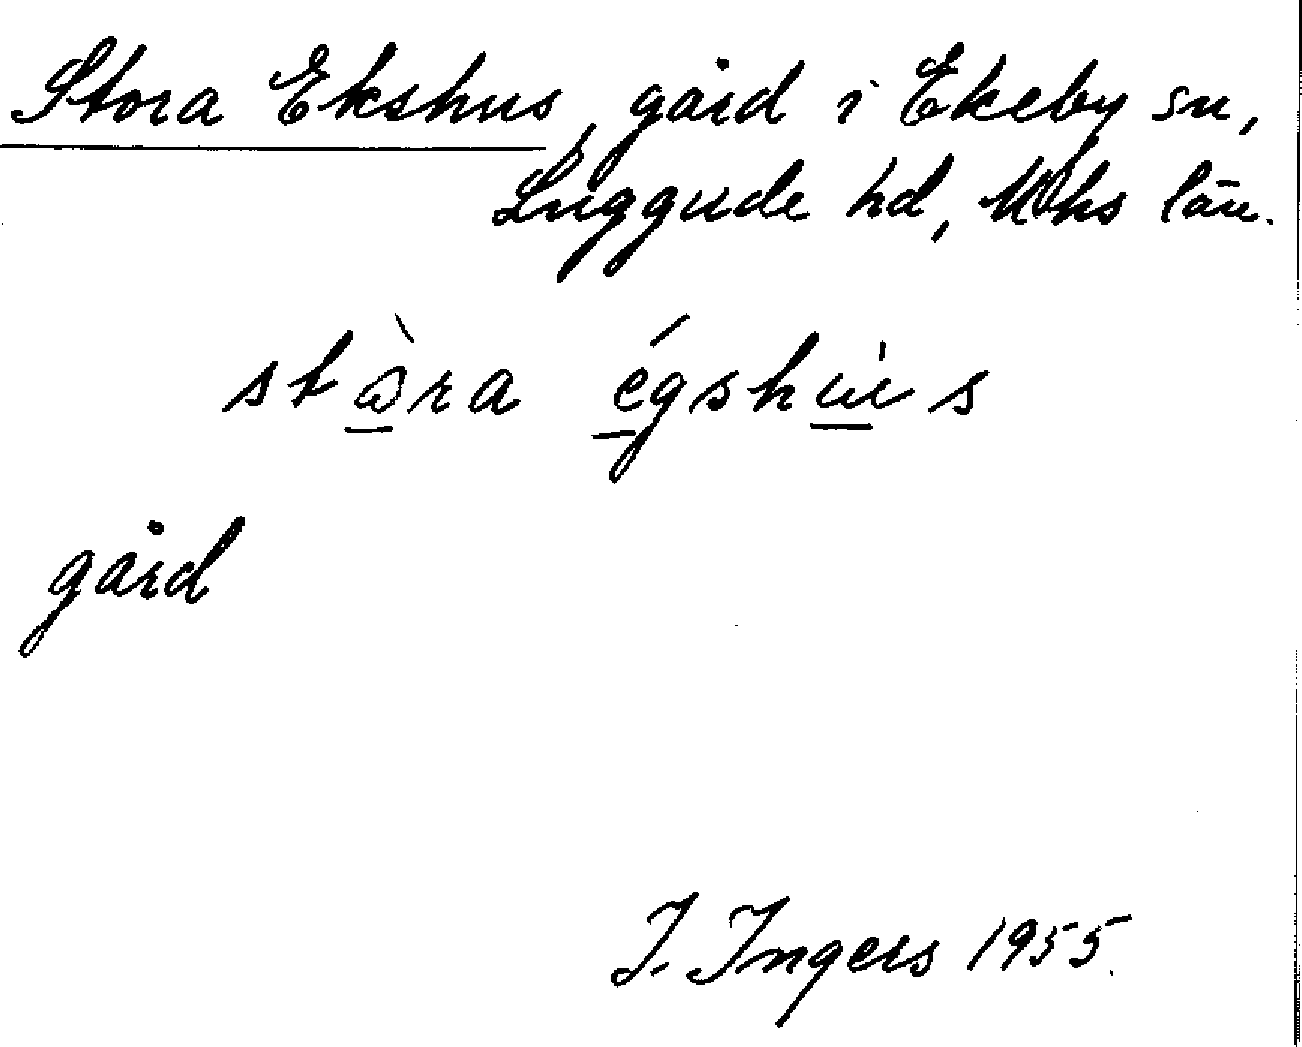 Stora Ekshus, gård i Ekeby sn,
Luggude hd, Mhs län.
stɷ̠̀ra é̠gshu̠s
gård
I. Ingers 1955.